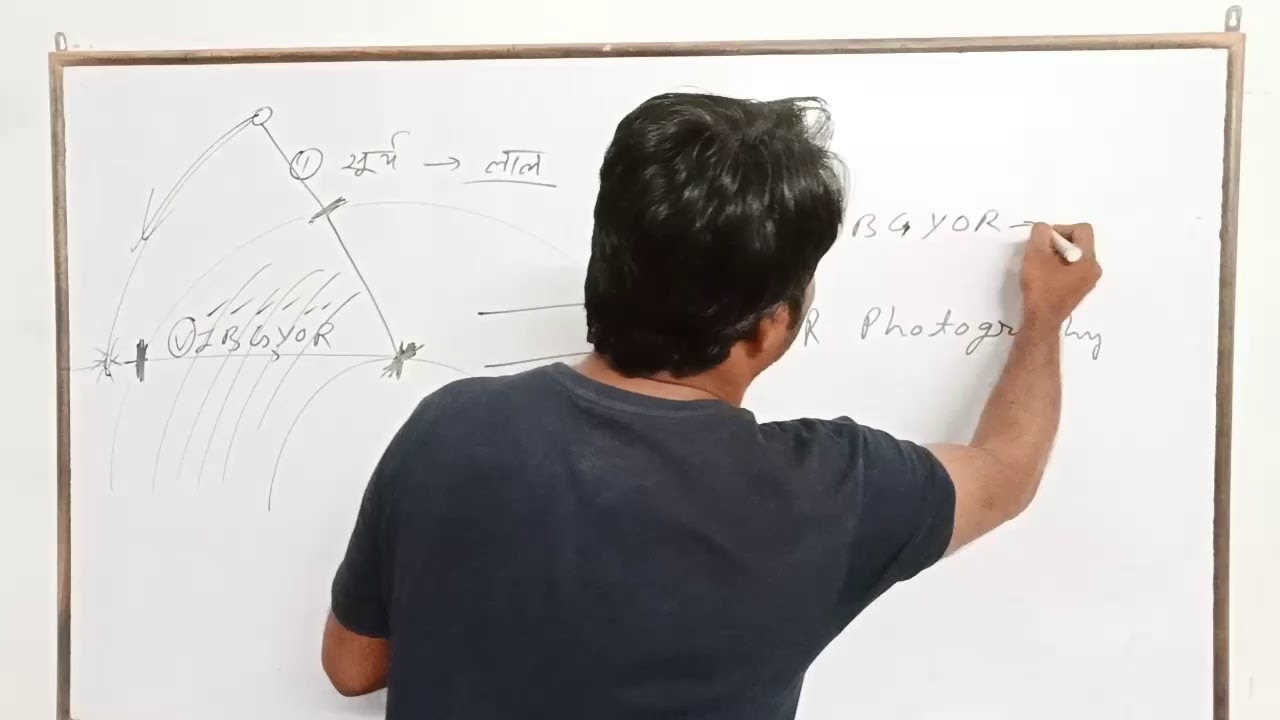 ① सूर्य → लाल
BGYOR →
VIBGYOR
R Photography